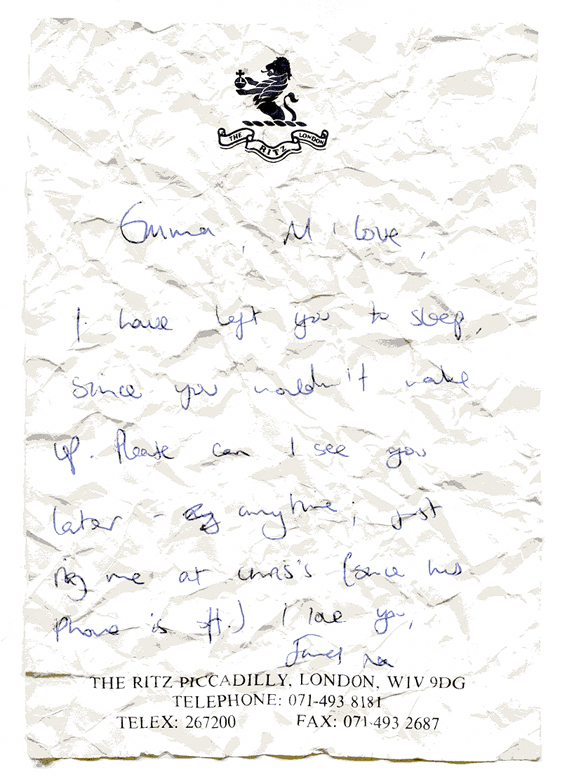 THE RITZ LONDON
Emma, M i love,
I have left you to sleep,
since you wouldn't wake
up. Please can I see you
later - anytime; just
ring me at Chris's (since his
phone is off.) I love you,
James xx
THE RITZ PICCADILLY, LONDON, W1V 9DG
TELEPHONE: 071-493 8181
TELEX: 267200 FAX: 071-493 2687